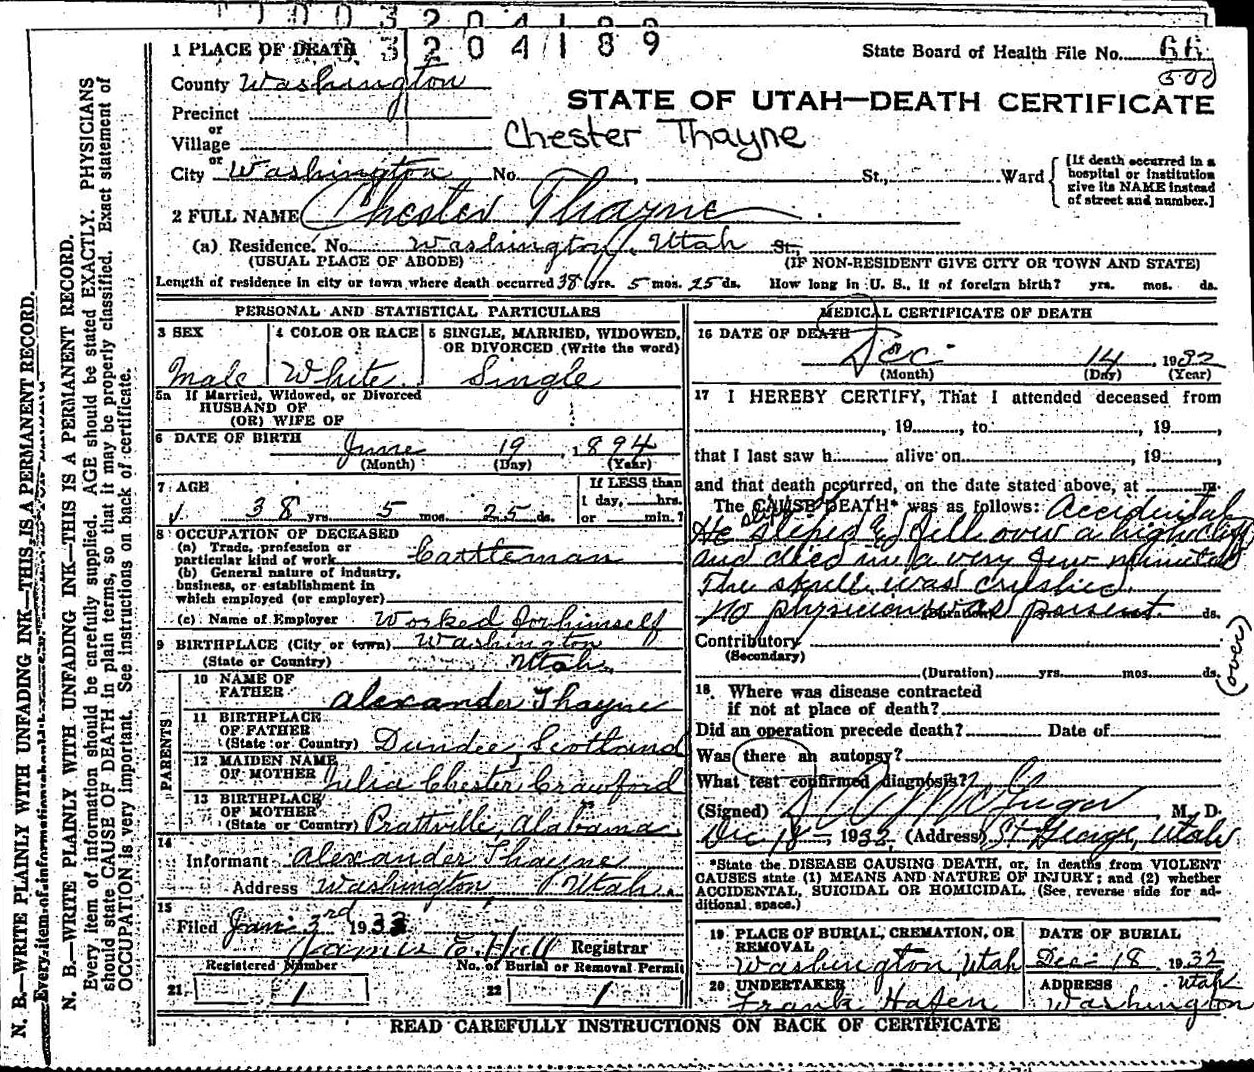 1003204189
3204189
1 PLACE OF DEATH
State Board of Health File No. 66
500
County Washington
STATE OF UTAH—DEATH CERTIFICATE
Precinct
or
Chester Thayne
Village
or
City Washington No. , St., Ward
[If death occurred in a hospital or institution give its NAME instead of street and number.]
2 FULL NAME Chester Thayne
(a) Residence. No. Washington, Utah St.
(USUAL PLACE OF ABODE) (IF NON-RESIDENT GIVE CITY OR TOWN AND STATE)
Length of residence in city or town where death occurred 38 yrs. 5 mos. 25 ds. How long in U. S., if of foreign birth? yrs. mos. ds.
PERSONAL AND STATISTICAL PARTICULARS
3 SEX
Male
4 COLOR OR RACE
White
5 SINGLE, MARRIED, WIDOWED, OR DIVORCED (Write the word)
Single
5a If Married, Widowed, or Divorced
HUSBAND OF
(OR) WIFE OF
6 DATE OF BIRTH
June 19, 1894
(Month) (Day) (Year)
7 AGE
38 yrs. 5 mos. 25 ds.
If LESS than
1 day, hrs.
or min.?
8 OCCUPATION OF DECEASED
(a) Trade, profession or
particular kind of work Cattleman
(b) General nature of industry,
business, or establishment in
which employed (or employer)
(c) Name of Employer Worked for himself
9 BIRTHPLACE (City or town) Washington
(State or Country) Utah
PARENTS
10 NAME OF
FATHER Alexander Thayne
11 BIRTHPLACE
OF FATHER
(State or Country) Dundee, Scotland
12 MAIDEN NAME
OF MOTHER Julia Chester Crawford
13 BIRTHPLACE
OF MOTHER
(State or Country) Prattville, Alabama
14
Informant Alexander Thayne
Address Washington, Utah.
15
Filed Jan. 3rd 1933
James E. Hall Registrar
Registered Number No. of Burial or Removal Permit
21 1 22 1
MEDICAL CERTIFICATE OF DEATH
16 DATE OF DEATH
Dec 14 1932
(Month) (Day) (Year)
17 I HEREBY CERTIFY, That I attended deceased from
, 19 , to , 19 ,
that I last saw h alive on , 19 ,
and that death occurred, on the date stated above, at m.
The CAUSE OF DEATH* was as follows: Accidental
He sliped & fell over a high cliff
and died in a very few minutes
The skull was crushed
No physician was present. (Duration) ds.
Contributory
(Secondary)
(Duration) yrs. mos. ds.
(over)
18 Where was disease contracted
if not at place of death?
Did an operation precede death? Date of
Was there an autopsy?
What test confirmed diagnosis?
(Signed) McGregor M. D.
Dec 18, 1932 (Address) St George, Utah
*State the DISEASE CAUSING DEATH, or, in deaths from VIOLENT
CAUSES state (1) MEANS AND NATURE OF INJURY; and (2) whether
ACCIDENTAL, SUICIDAL OR HOMICIDAL. (See reverse side for ad-
ditional space.)
19 PLACE OF BURIAL, CREMATION, OR REMOVAL
Washington, Utah
DATE OF BURIAL
Dec 18 1932
20 UNDERTAKER
Frank Hafen
ADDRESS
Washington Utah
READ CAREFULLY INSTRUCTIONS ON BACK OF CERTIFICATE
N. B.—WRITE PLAINLY WITH UNFADING INK—THIS IS A PERMANENT RECORD.
Every item of information should be
N. B.—WRITE PLAINLY WITH UNFADING INK—THIS IS A PERMANENT RECORD.
Every item of information should be carefully supplied. AGE should be stated EXACTLY. PHYSICIANS
should state CAUSE OF DEATH in plain terms, so that it may be properly classified. Exact statement of
OCCUPATION is very important. See instructions on back of certificate.